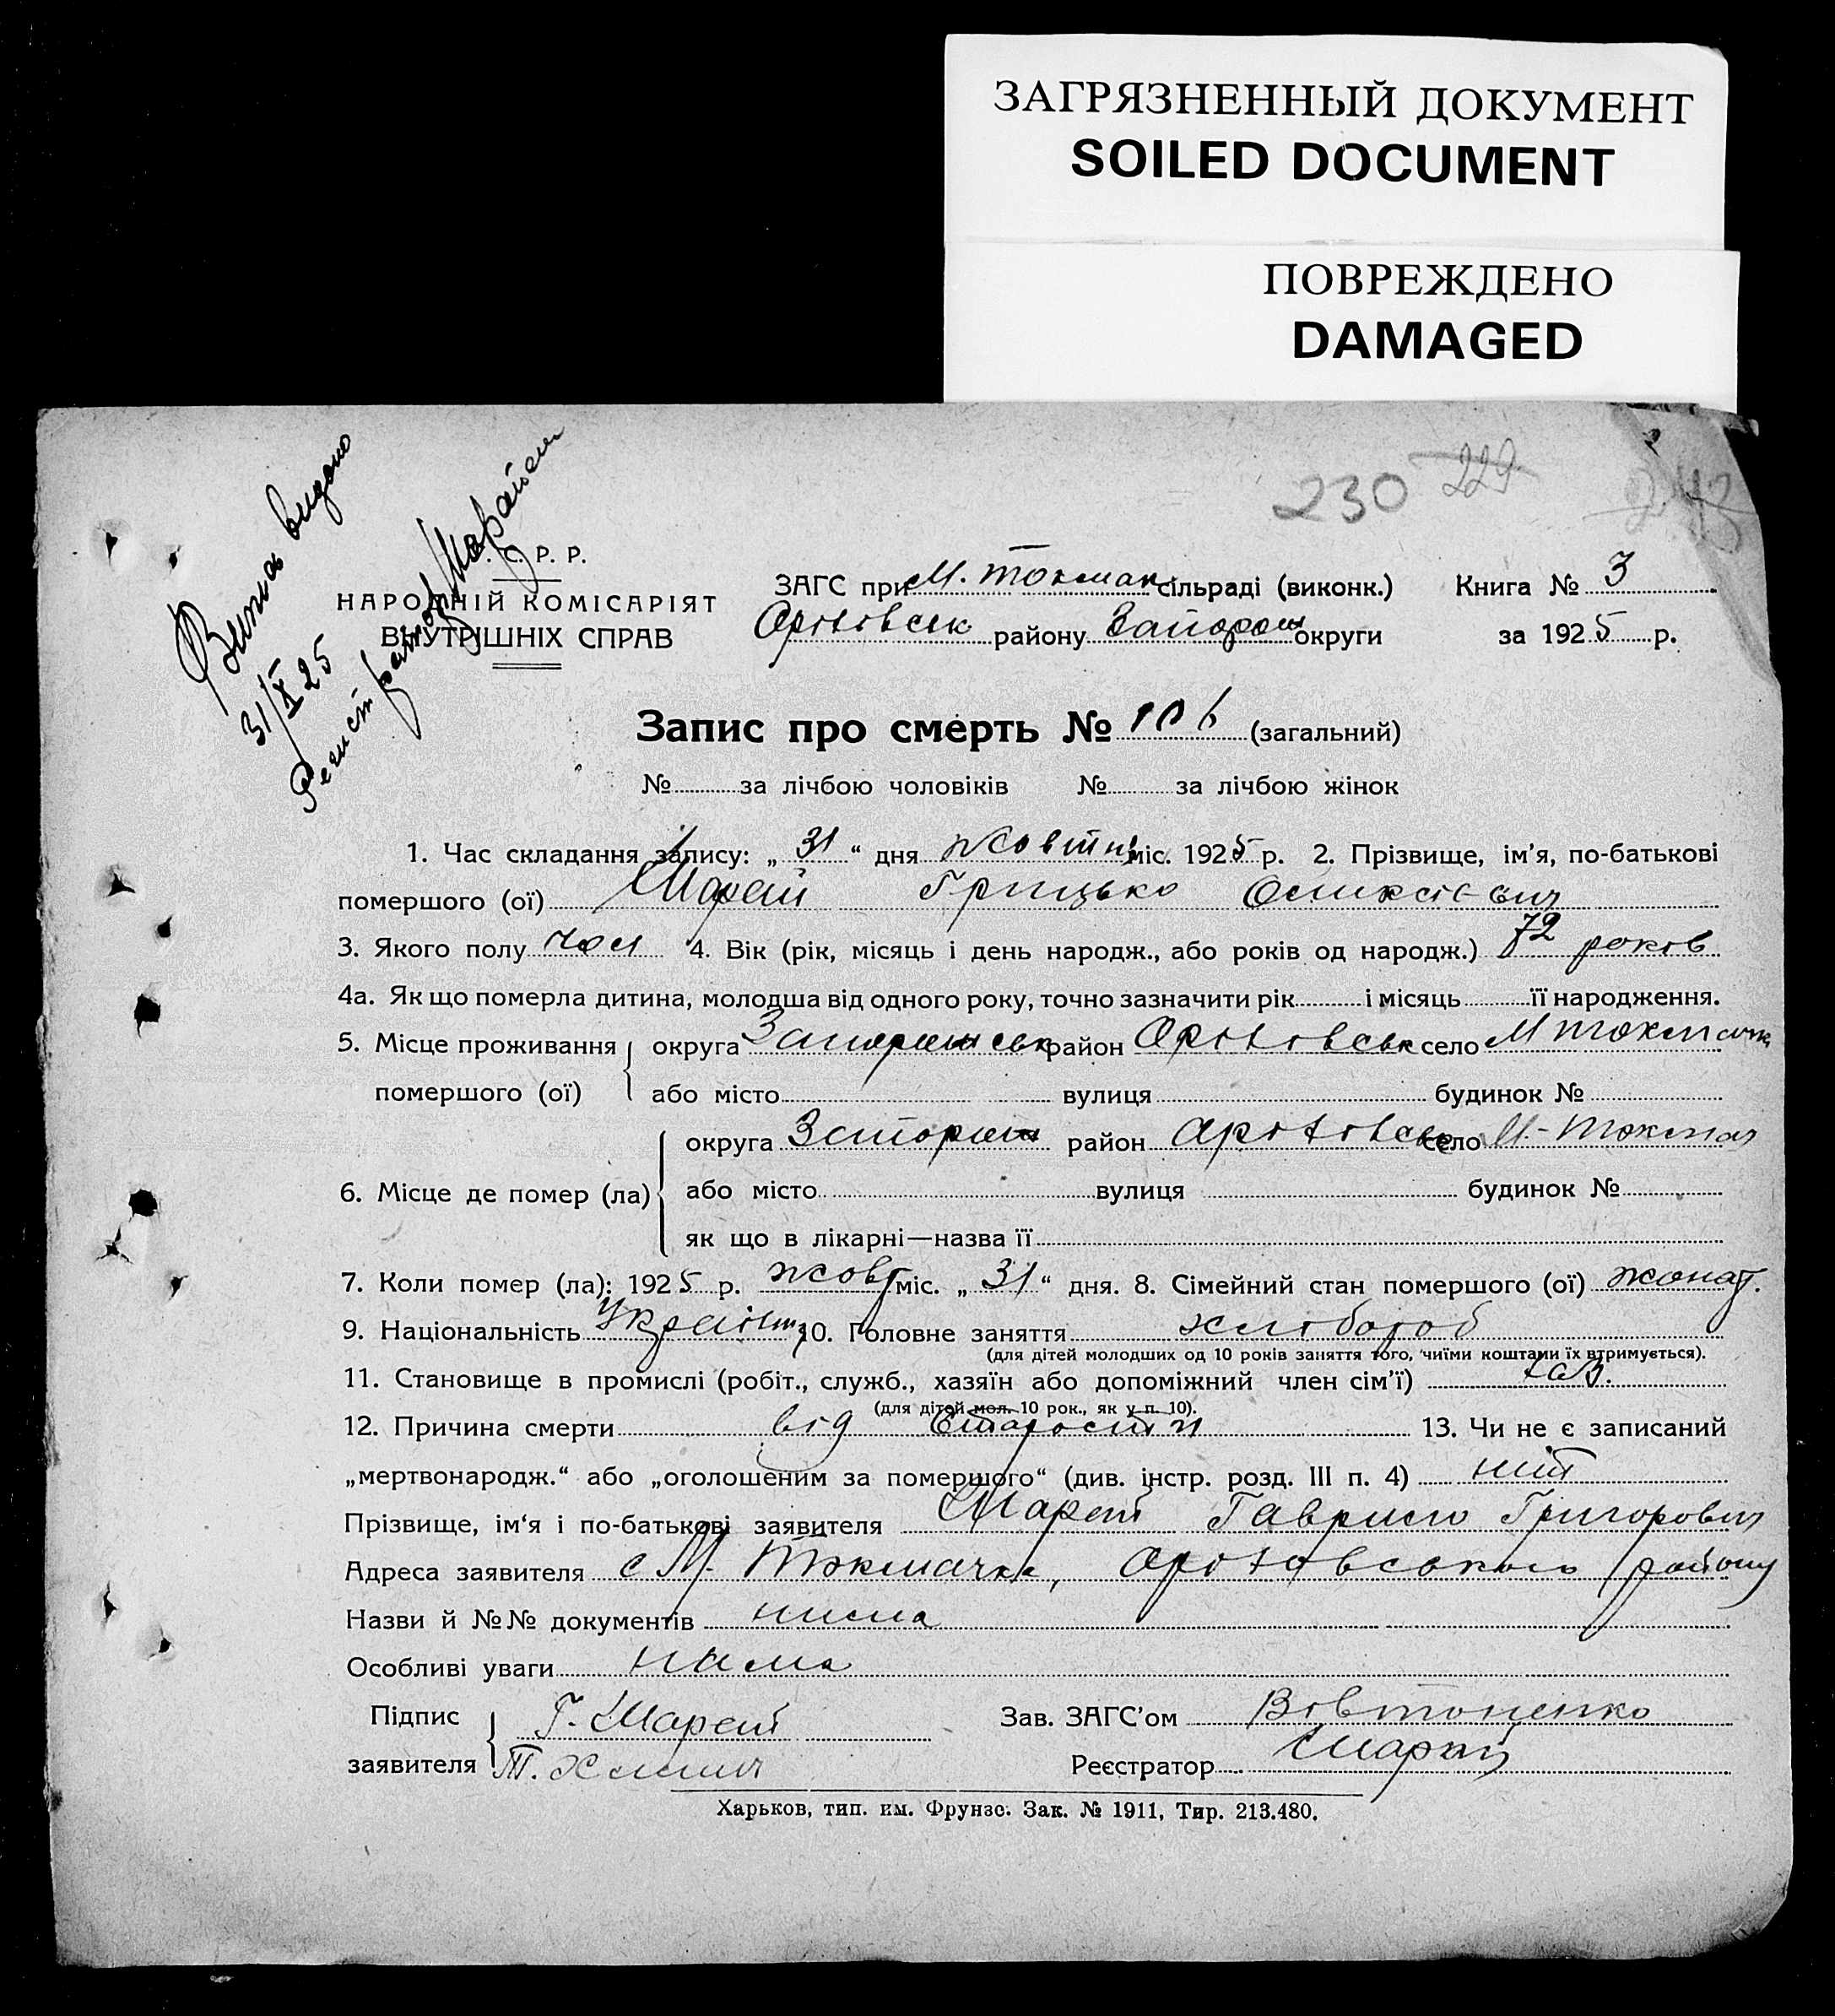 ЗАГРЯЗНЕННЫЙ ДОКУМЕНТ
SOILED DOCUMENT
ПОВРЕЖДЕНО
DAMAGED
230 229
Випись видано
31/X 25
С. Р. Р.
НАРОДНІЙ КОМІСАРІЯТ
ВНУТРІШНІХ СПРАВ
ЗАГС при М. Токмач. сільраді (виконк.) Книга № 3
Оріхівськ району Запорож округи за 1925 р.
Запис про смерть № 106 (загальний)
№ за лічбою чоловіків № за лічбою жінок
1. Час складання запису: „ 31 “ дня жовтня міс. 1925 р. 2. Прізвище, ім’я, по-батькові
помершого (ої) Шарай Грицько
3. Якого полу чол 4. Вік (рік, місяць і день народж., або років од народж.) 72 років
4а. Як що померла дитина, молодша від одного року, точно зазначити рік і місяць її народження.
5. Місце проживання округа район Оріхівськ село М Токмачк
помершого (ої) або місто вулиця будинок №
округа Запорож район Оріхівськ село М-Токмач
6. Місце де помер (ла) або місто вулиця будинок №
як що в лікарні—назва її
7. Коли помер (ла): 1925 р. жовт міс. „ 31 “ дня. 8. Сімейний стан помершого (ої) жонат.
9. Національність Україн. 10. Головне заняття хлібороб
(для дітей молодших од 10 років заняття того, чиїми коштами їх втримується).
11. Становище в промислі (робіт., служб., хазяїн або допоміжний член сім’ї) хаз.
(для дітей мол. 10 рок., як у п. 10).
12. Причина смерти від старости 13. Чи не є записаний
„мертвонародж.“ або „оголошеним за померщого“ (див. інстр. розд. III п. 4) ніт
Прізвище, ім‘я і по-батькові заявителя Шарай Гаврило Григорович
Адреса заявителя с М. Токмачка, Оріхівського району
Назви й №№ документів нима
Особливі уваги нима
Підпис Г. Шарай Зав. ЗАГС’ом Вівтоненко
заявителя Т. Реєстратор Шарай
Харьков, тип. им. Фрунзе. Зак. № 1911, Тир. 213.480.